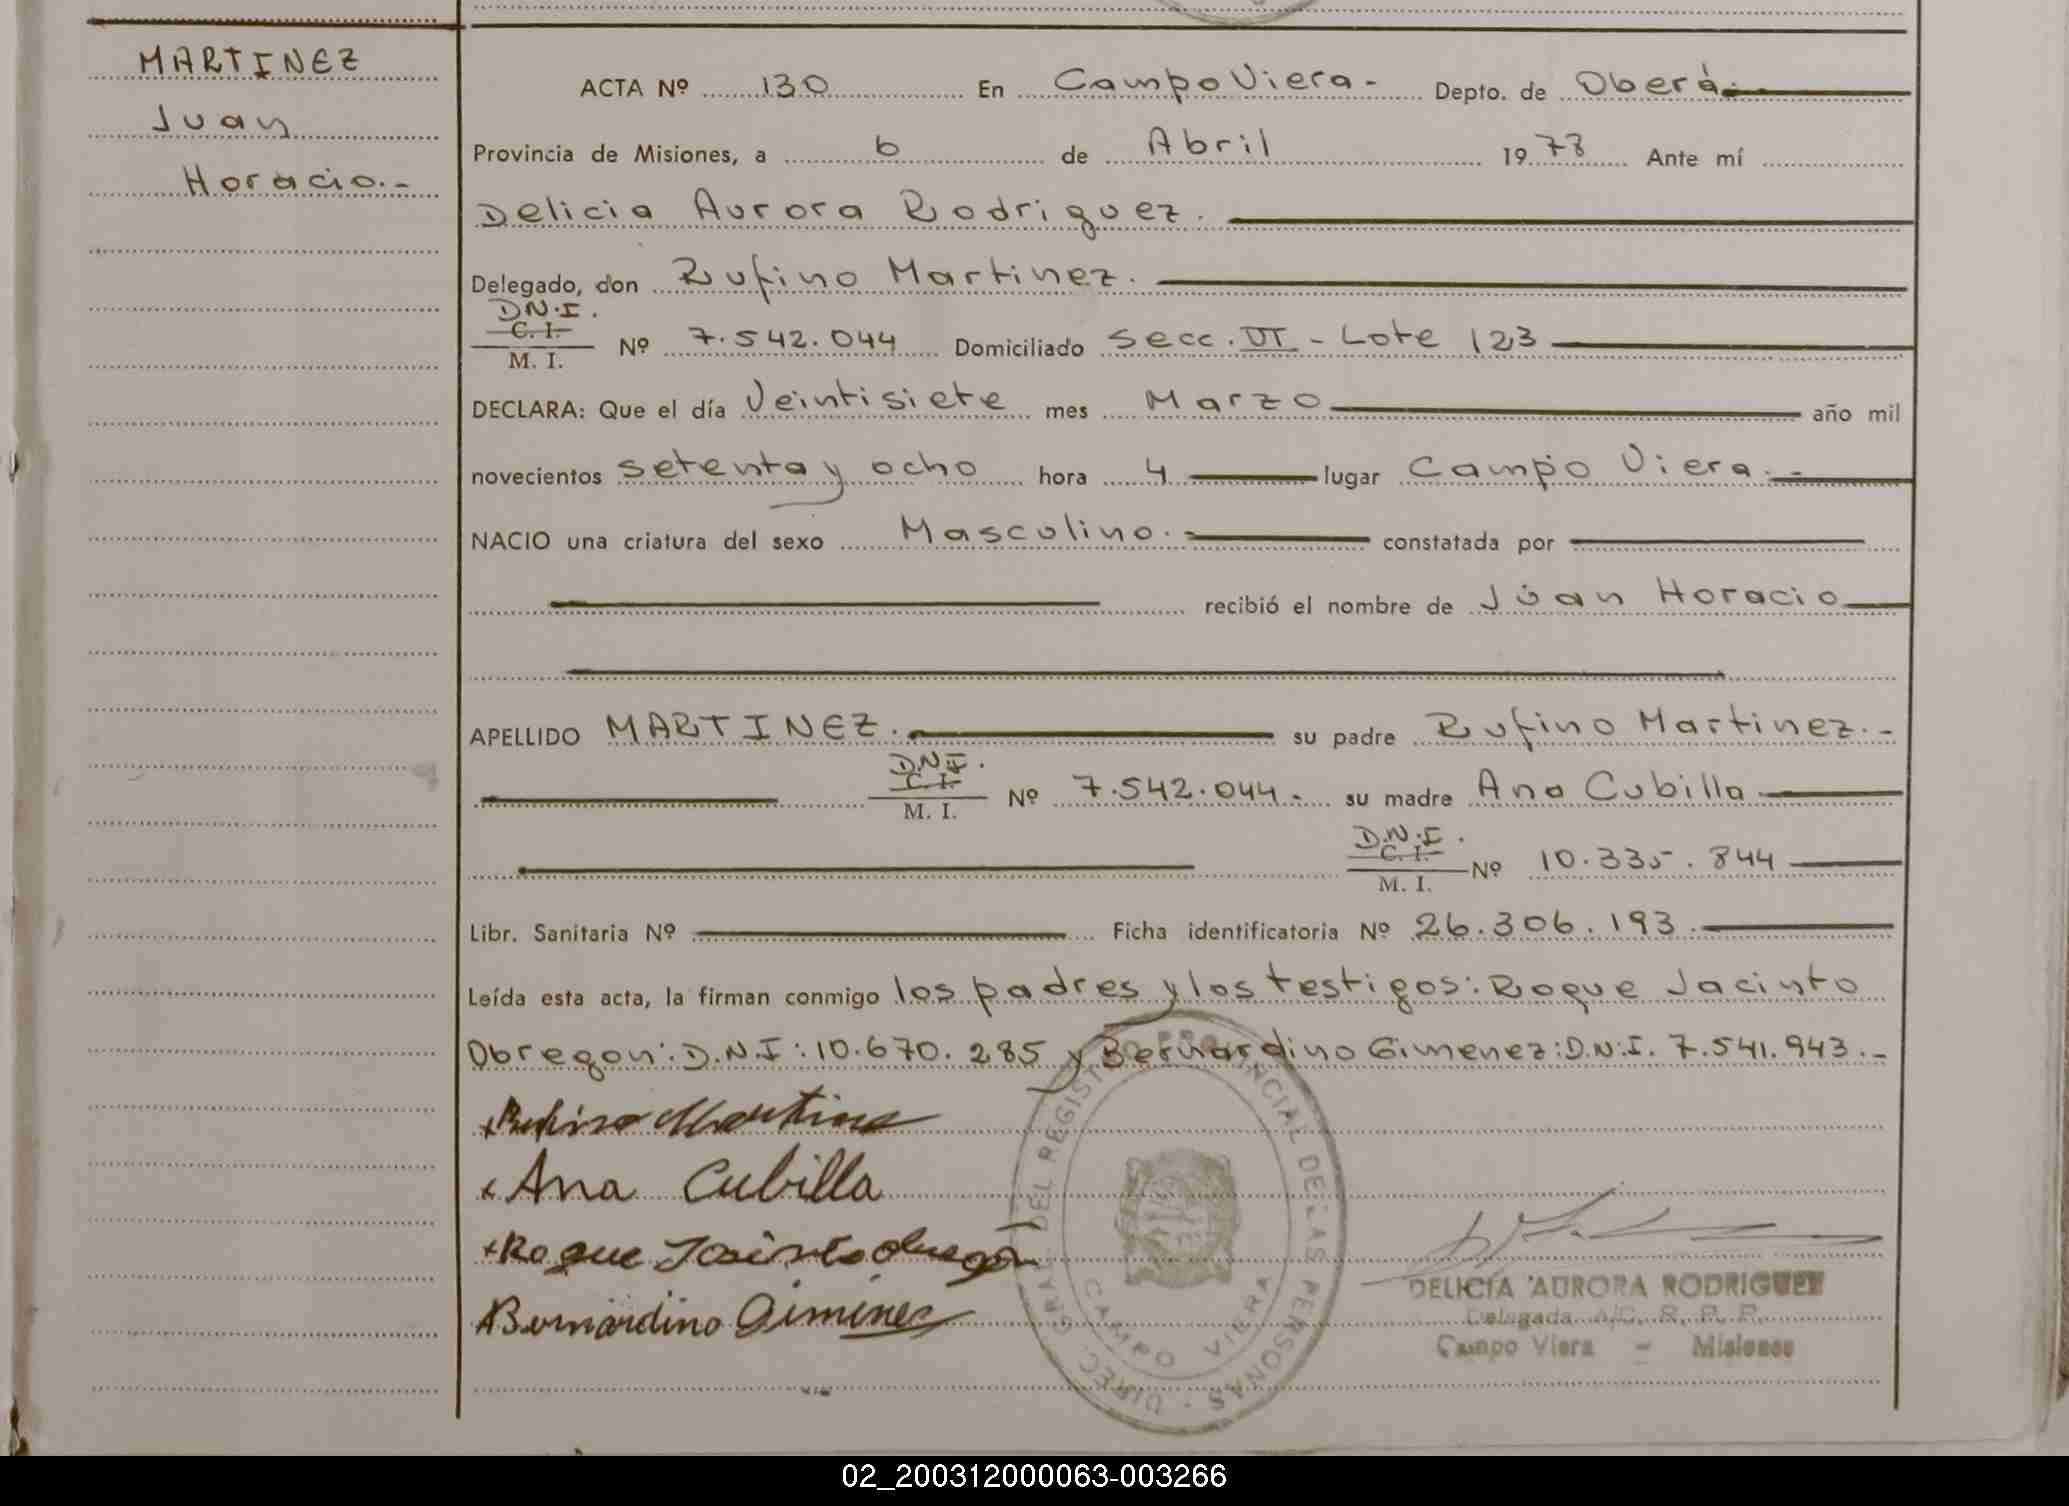 MARTINEZ
Juan
Horacio.-
ACTA Nº 130 En Campo Viera - Depto. de Oberá.
Provincia de Misiones, a 6 de Abril 1978 Ante mí
Delicia Aurora Rodriguez.
Delegado, don Rufino Martinez.
D.N.I.
C. I.
M. I. Nº 7.542.044 Domiciliado Secc. VI - Lote 123
DECLARA: Que el día Veintisiete mes Marzo año mil
novecientos setenta y ocho hora 4 lugar Campo Viera.-
NACIO una criatura del sexo Masculino.- constatada por
recibió el nombre de Júan Horacio
APELLIDO MARTINEZ. su padre Rufino Martinez.-
D.N.I.
C. I.
M. I. Nº 7.542.044.- su madre Ana Cubilla
D.N.I.
C. I.
M. I. Nº 10.335.844
Libr. Sanitaria Nº Ficha identificatoria Nº 26.306.193.
Leída esta acta, la firman conmigo los padres y los testigos: Roque Jacinto
Obregon: D.N.I: 10.670.285 y Bernardino Gimenez: D.N.I. 7.541.943.-
+Rufino Martinez
+ Ana Cubilla
+Roque Jacinto Obregón
Bernardino Giminez
DIREC. GRAL. DEL REGISTRO PROVINCIAL DE LAS PERSONAS
CAMPO VIERA
DELICIA AURORA RODRIGUEZ
Delegada A/C. R. P. P.
Campo Viera - Misiones
02_200312000063-003266